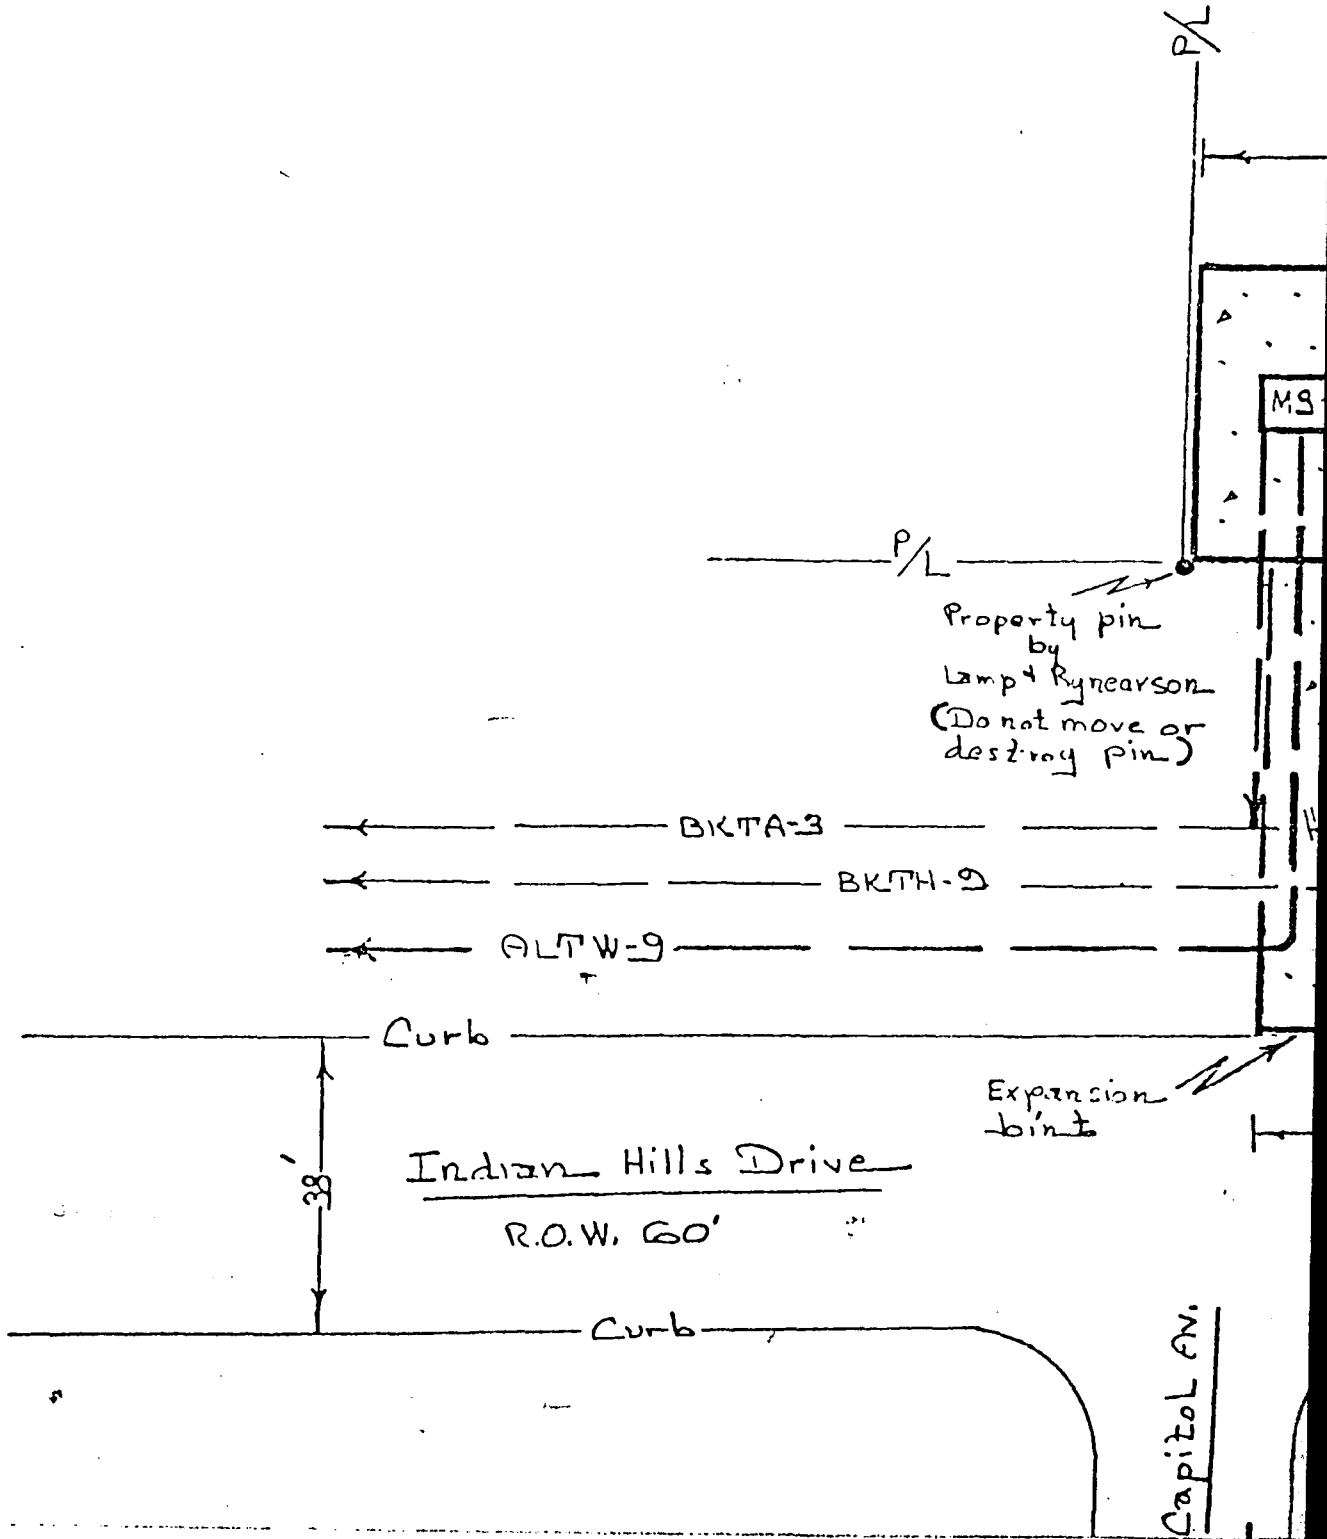 P/L
M.S
P/L
Property pin
by
Lamp & Rynearson
(Do not move or
destroy pin)
BKTA-3
BKTH-9
ALTW-9
Curb
Expansion
Joint
38'
Indian Hills Drive
R.O.W. 60'
Curb
Capitol Av.